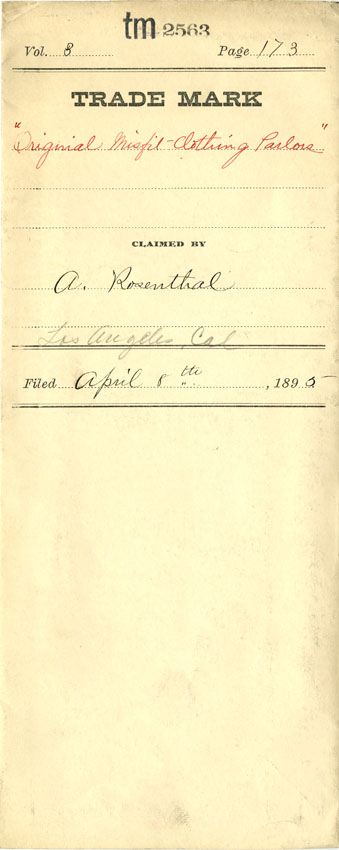 tm 2563
Vol. 8 Page 173
TRADE MARK
"Original Misfit-Clothing Parlors"
CLAIMED BY
A. Rosenthal
Los Angeles, Cal
Filed April 8th, 1895